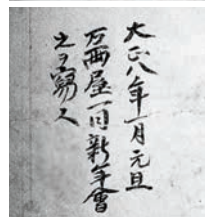 大正八年一月元旦
万両屋一同新年會
之ヲ写ス